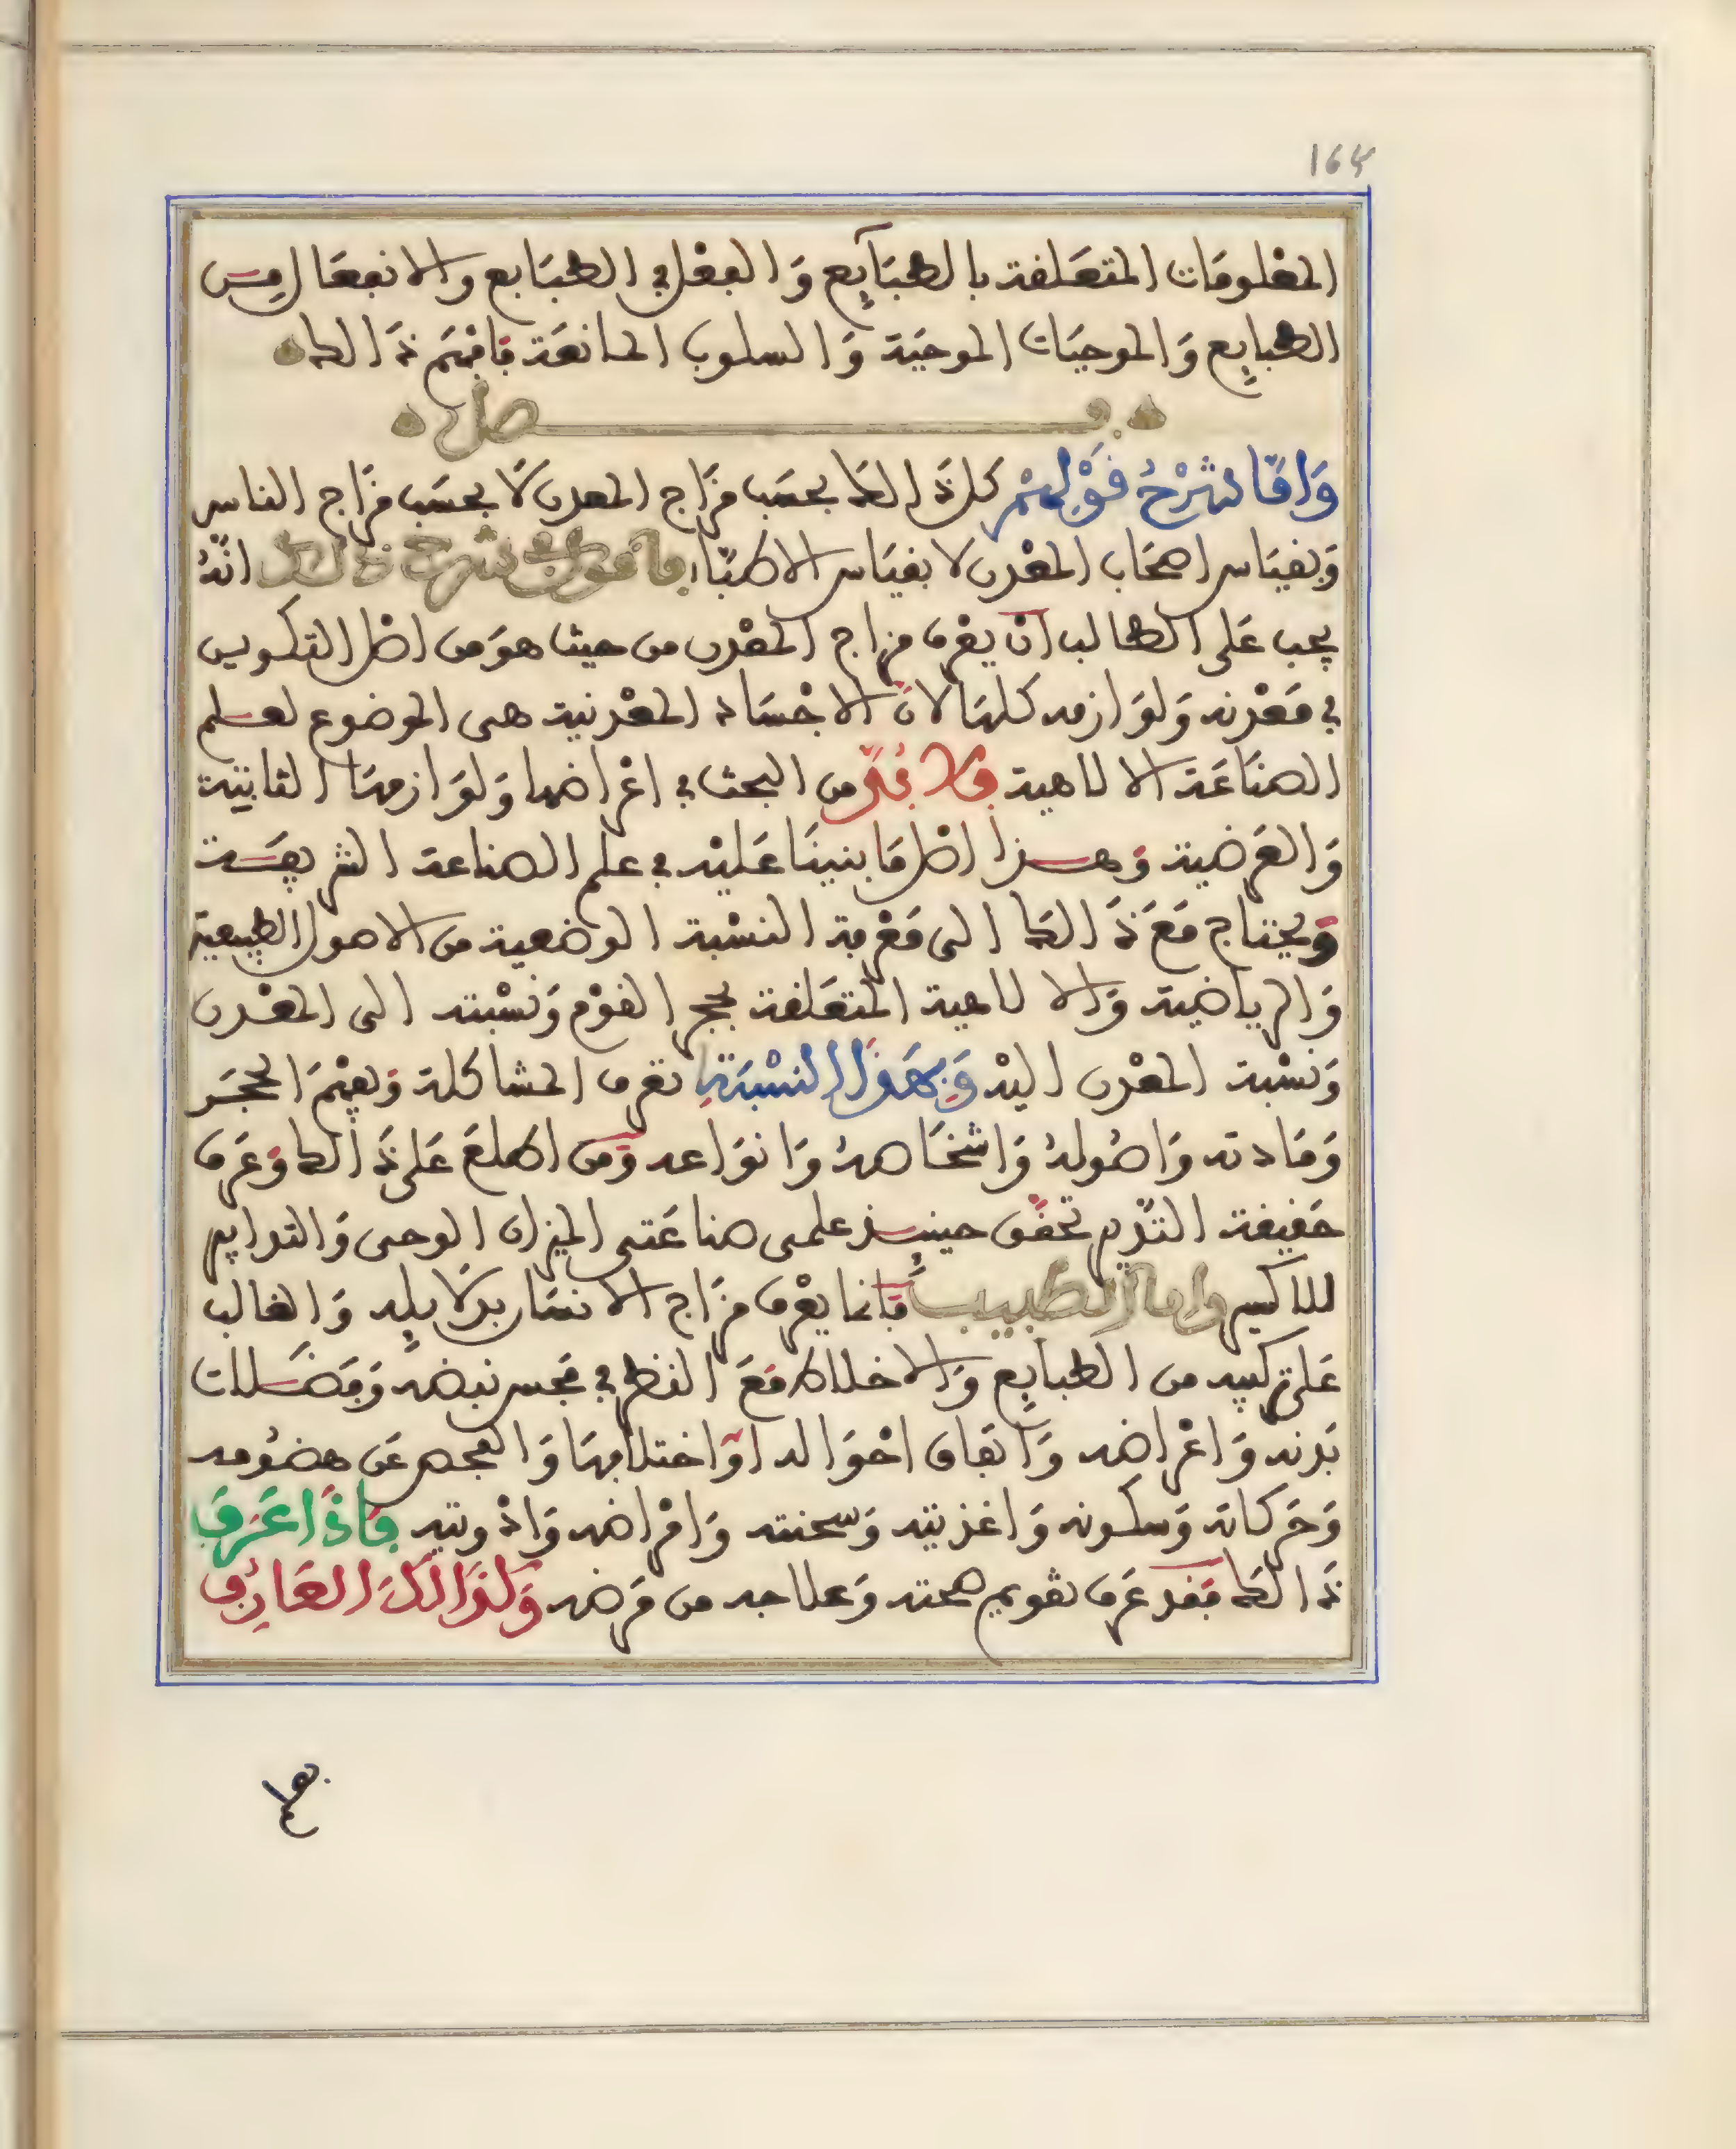 164
المعلومات المتعلقة بالطبآيع والفعل في الطبايع والانفعال من
الطبايع والموجبات الموجبة والسلوب المانعة فافهم ذالك
فصل
وَامَّا شَرْحُ قَوْلِهِمْ كل ذالك بحسَب مزَاج المعدن لَا بحسَب مزَاج الناس
وبقيَاس اصحَاب المعْدن لا بقيَاس الاطبّاء فاقول في شرح ذلك انهُ
يجب عَلى الطالب ان يعْرف مزاج المعْدن من حيث هوَ من اصْل التكوين
في مَعْدنه وَلوَازمه كلهَا لانّ الاجْسَاد المعْدنية هى الموضوع لعلم
الصنَاعَة الالاهية فلا بُدَّ من البحث في اعْراضها وَلوَازمهَا الثابتة
وَالعَرضية وَهذا اصْل مَا بنينَا عَليْه في علم الصناعة الشريفة
وَيحتاج مَعَ ذَالك الى مَعْرفة النسْبة الوضعية من الاصول الطبيعية
وَالرياضية وَالالاهية المتعَلقة بحجر القوْم وَنسْبته الى المعْدن
وَنسْبة المعْدن اليْه وَبِهَذَا النسْبَةِ تعْرف المشاكلة وَيفهَم الحجَر
وَمَادته وَاصُولهُ وَاشخَاصهُ وَانوَاعه وَمَن اطلعَ عَلى ذَالك وَعَرف
حَقيقة التدبير تحقّق حينيـذ علمى صناعَتى الميزان الوحى وَالتدابير
للاكسير واما الطبيب فَانما يعْرف مزَاج الانسَان بدلَايله وَالغالب
عَلى تركيبه من الطبايع وَالاخلاط مَعَ النظر في مَجس نبضه وَفَضَلات
بَدنه وَاعْراضه وَاتفاق احْوَاله اوَ اختلافهَا وَالفحص عَن هضُومه
وَحَركاته وَسكونه وَاغذيته وَسحنته وَامْراضه وَادْويته فَاذَا عَرَفَ
ذَالك فَقد عَرف تقويم صحته وَعلاجه من مَرضه وَكَذَالكَ العَارِف